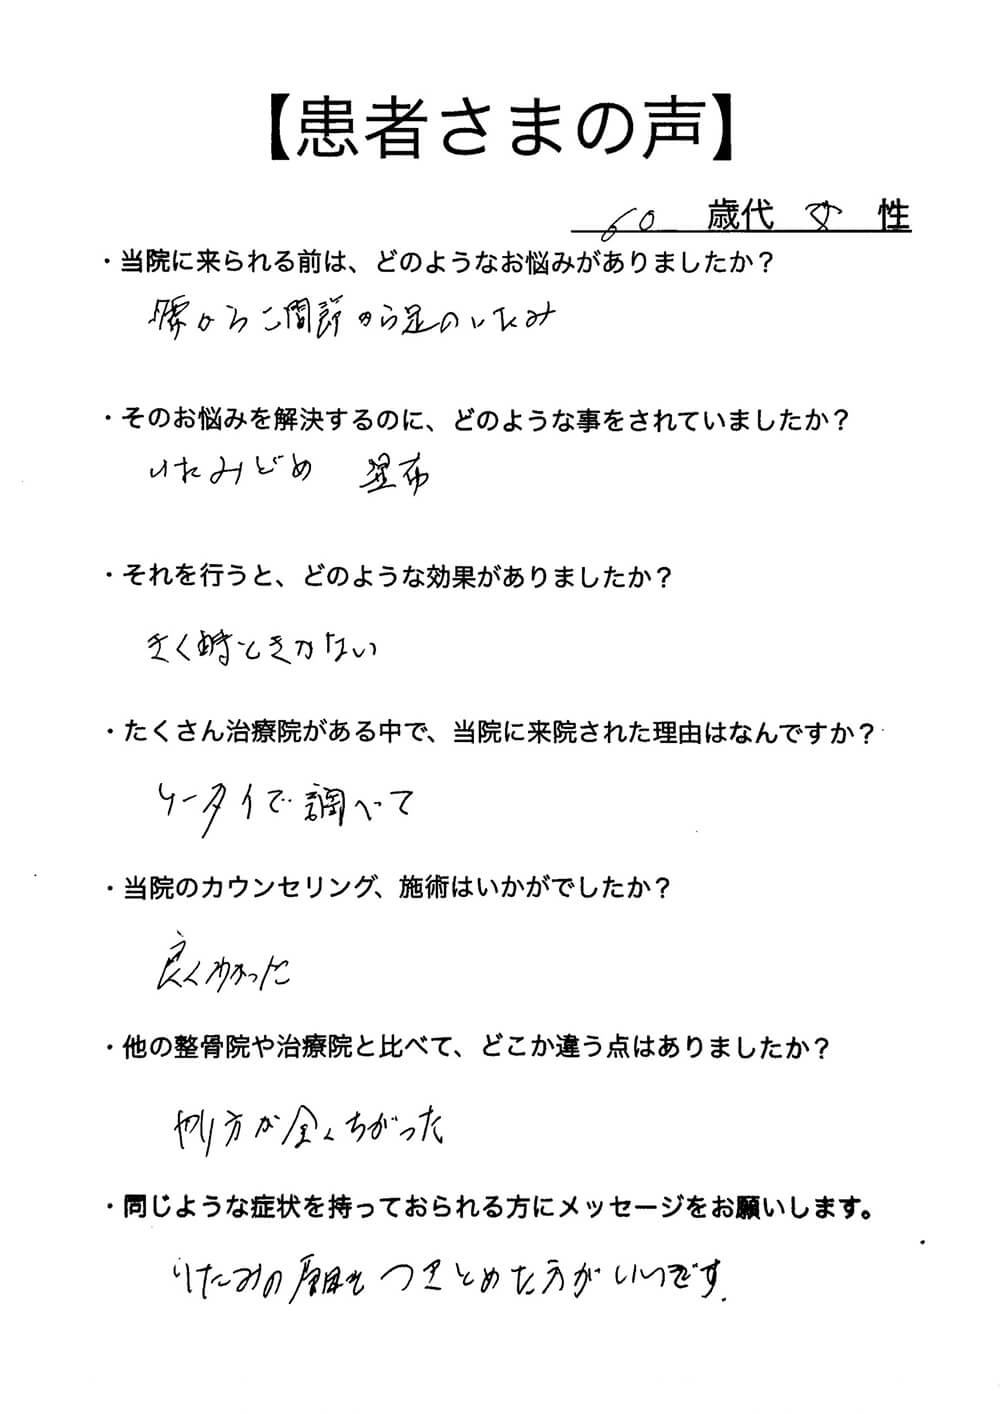 【患者さまの声】
60 歳代 女 性
・当院に来られる前は、どのようなお悩みがありましたか？
腰からこ間節から足のいたみ
・そのお悩みを解決するのに、どのような事をされていましたか？
いたみどめ 湿布
・それを行うと、どのような効果がありましたか？
きく時ときかない
・たくさん治療院がある中で、当院に来院された理由はなんですか？
ケータイで調べて
・当院のカウンセリング、施術はいかがでしたか？
良くわかった
・他の整骨院や治療院と比べて、どこか違う点はありましたか？
やり方が全くちがった
・同じような症状を持っておられる方にメッセージをお願いします。
いたみの原因をつきとめた方がいいです.